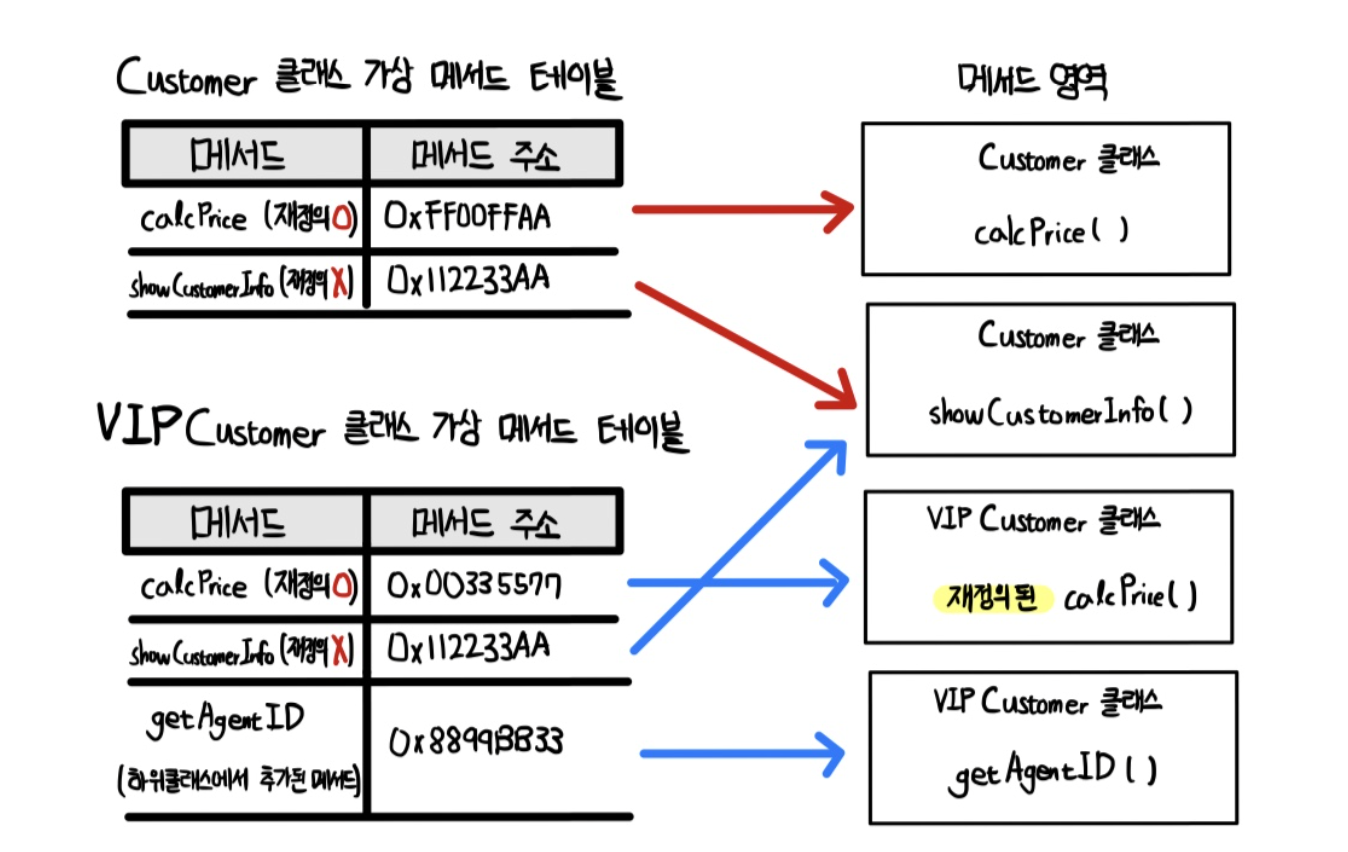 Customer 클래스 가상 메서드 테이블
메서드 메서드 주소
calcPrice (재정의O) 0xFF00FFAA
showCustomerInfo (재정의X) 0x112233AA
VIPCustomer 클래스 가상 메서드 테이블
메서드 메서드 주소
calcPrice (재정의O) 0x00335577
showCustomerInfo (재정의X) 0x112233AA
getAgentID 0x8899BB33
(하위클래스에서 추가된 메서드)
메서드 영역
Customer 클래스
calcPrice( )
Customer 클래스
showCustomerInfo( )
VIP Customer 클래스
재정의된 calcPrice( )
VIP Customer 클래스
getAgentID ( )